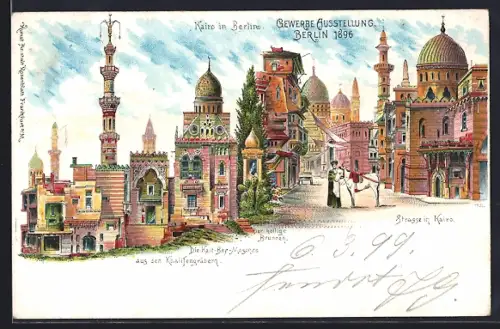 Kairo in Berlin.
GEWERBE AUSSTELLUNG
BERLIN 1896
Der heilige
Brunnen.
Strasse in Kairo.
Die Kait-Bey-Moschee
aus den Khalifengräbern.
6.3.99.